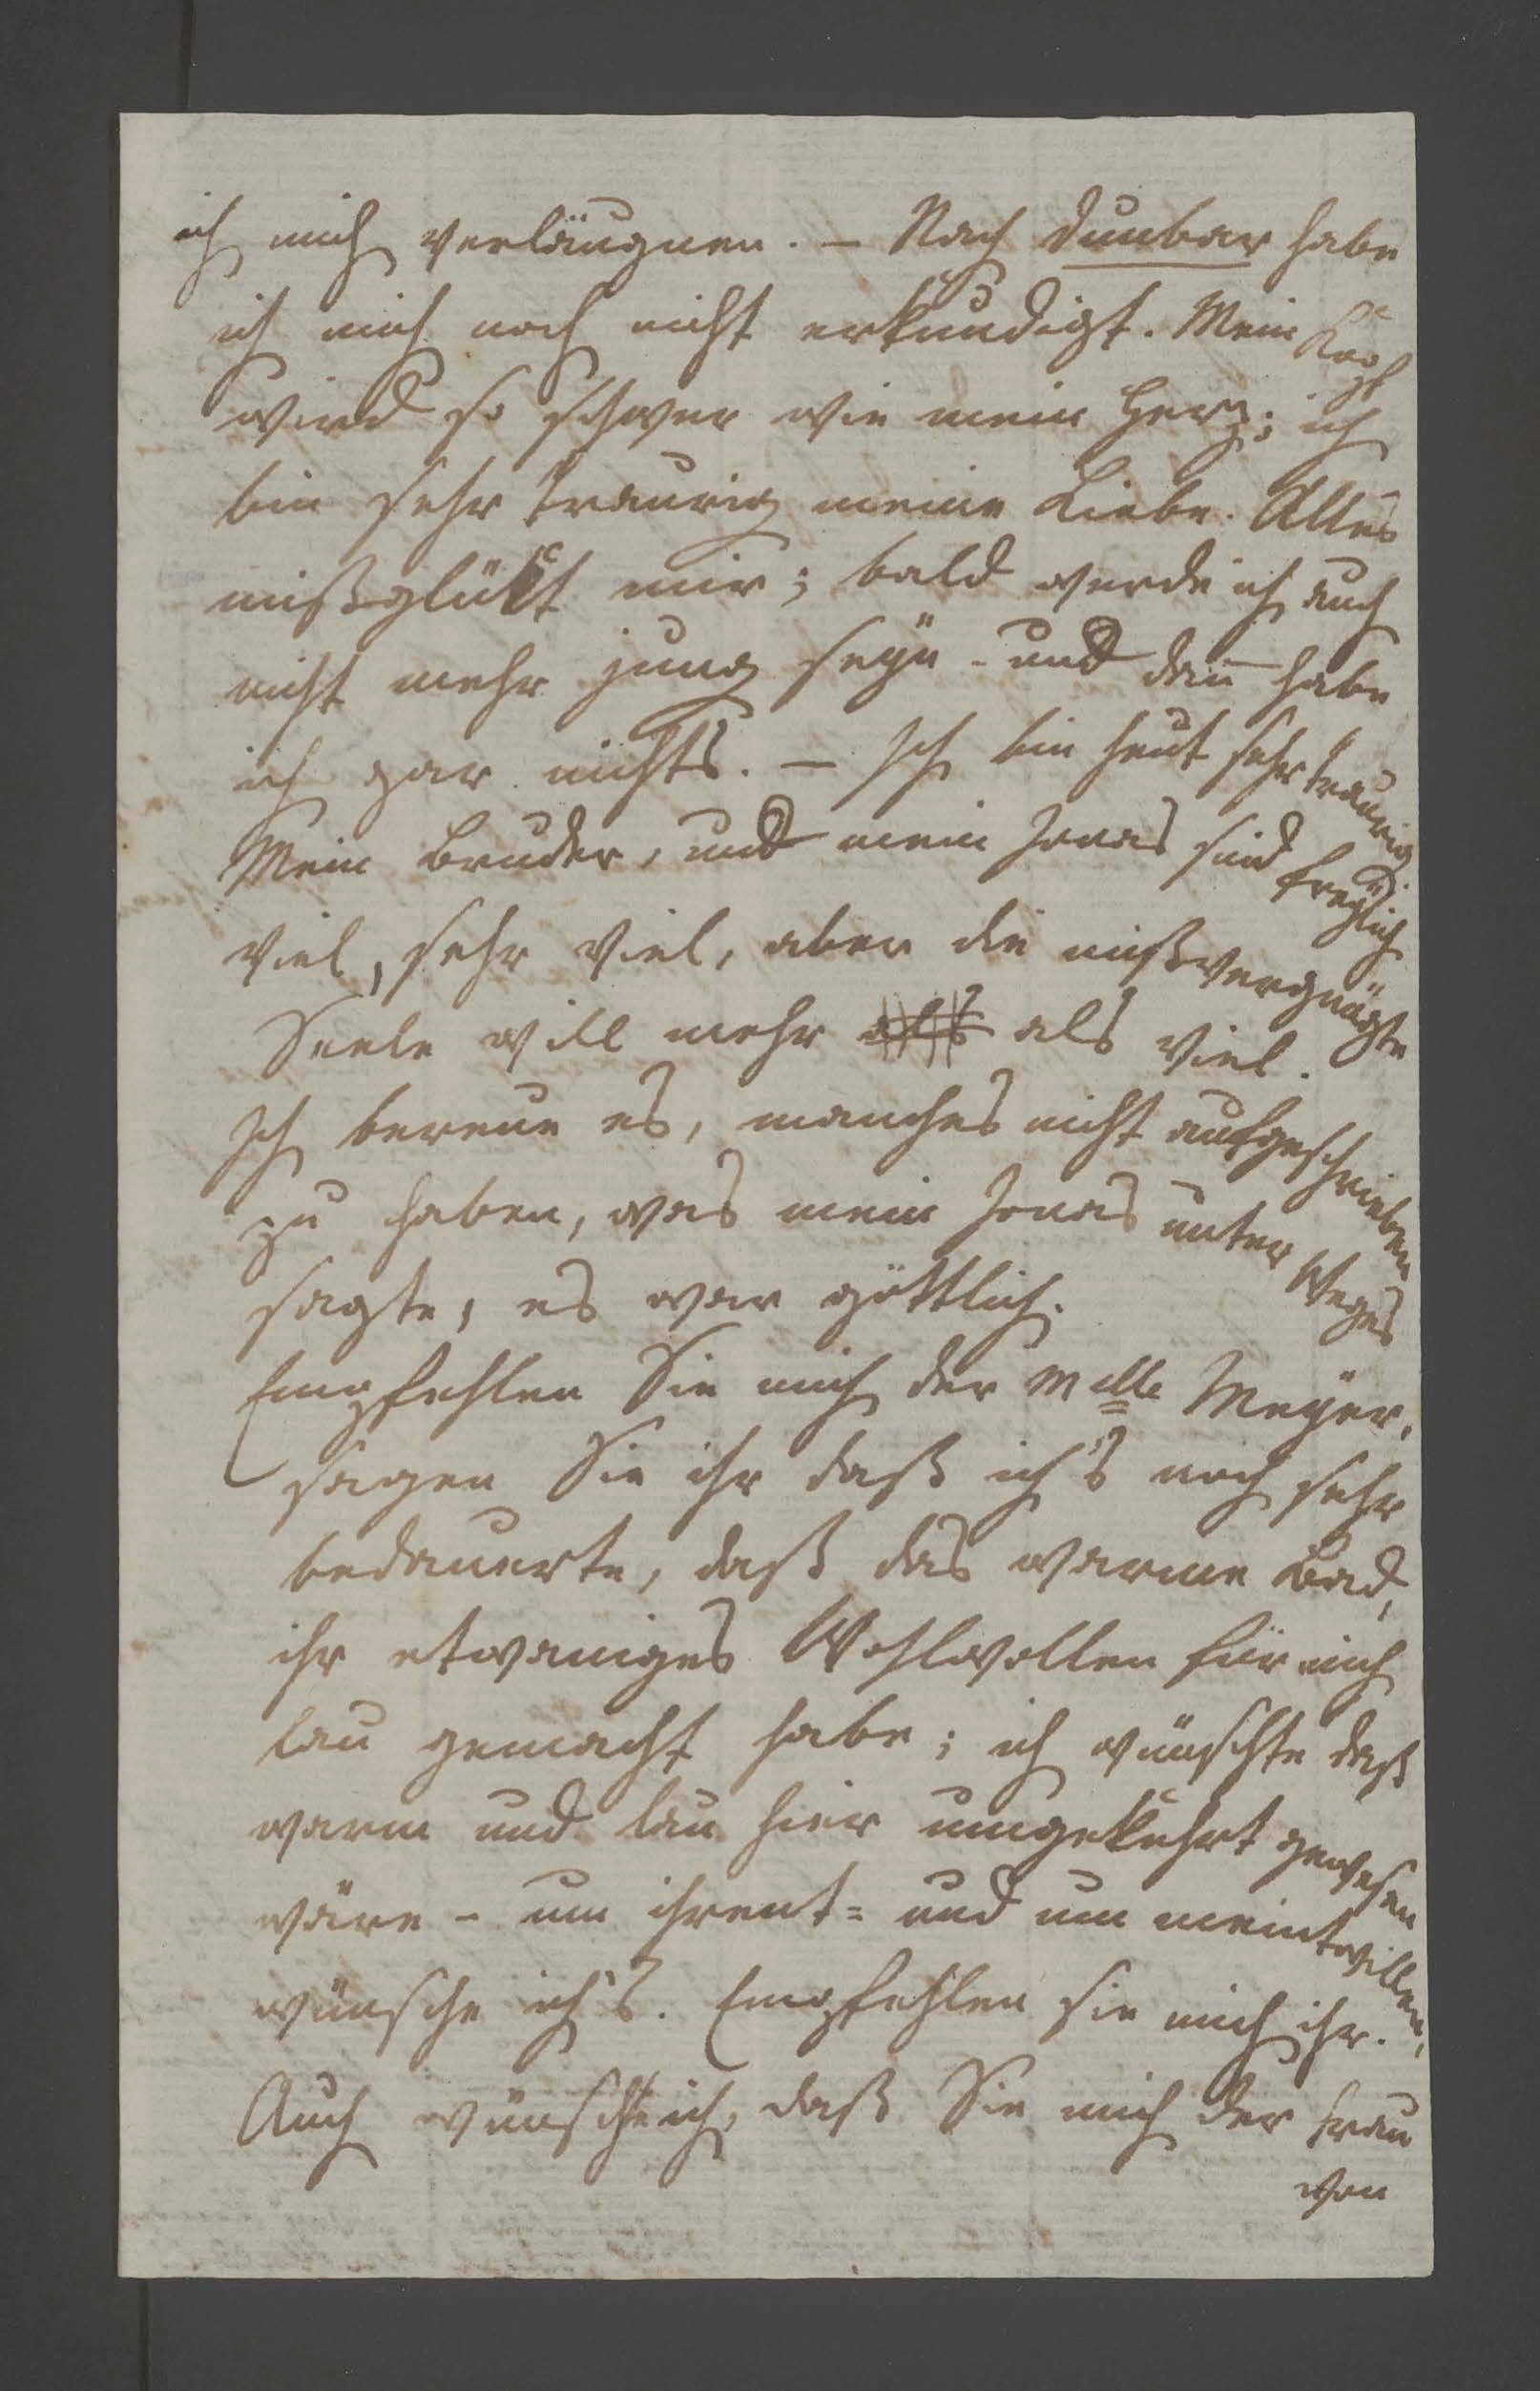 ich mich verläugnen. – Nach Dunbar habe
ich mich noch nicht erkundigt. Mein Kopf
wird so schwer wie mein Herz; ich
bin sehr traurig meine Liebe. Alles
mißglückt mir; bald werde ich auch
nicht mehr jung seÿn – und dann habe
ich gar nichts. – Ich bin heut sehr traurig
Mein Bruder, und mein Jonas sind freÿlich
viel, sehr viel, aber die mißvergnügte
Seele will mehr als als viel.
Ich bereue es, manches nicht aufgeschrieben
zu haben, was mein Jonas unter Weges
sagte, es war göttlich.
Empfehlen Sie mich der Mlle Meÿer,
sagen Sie ihr daß ich's noch sehr
bedauerte, daß das warme Bad,
ihr etwaniges Wohlwollen für mich
lau gemacht habe; ich wünschte daß
warm und lau hier umgekehrt gewesen
wäre – um ihrent= und um meintwillen,
wünsche ich's. Empfehlen sie mich ihr.
Auch wünschte ich, daß Sie mich der Frau
von